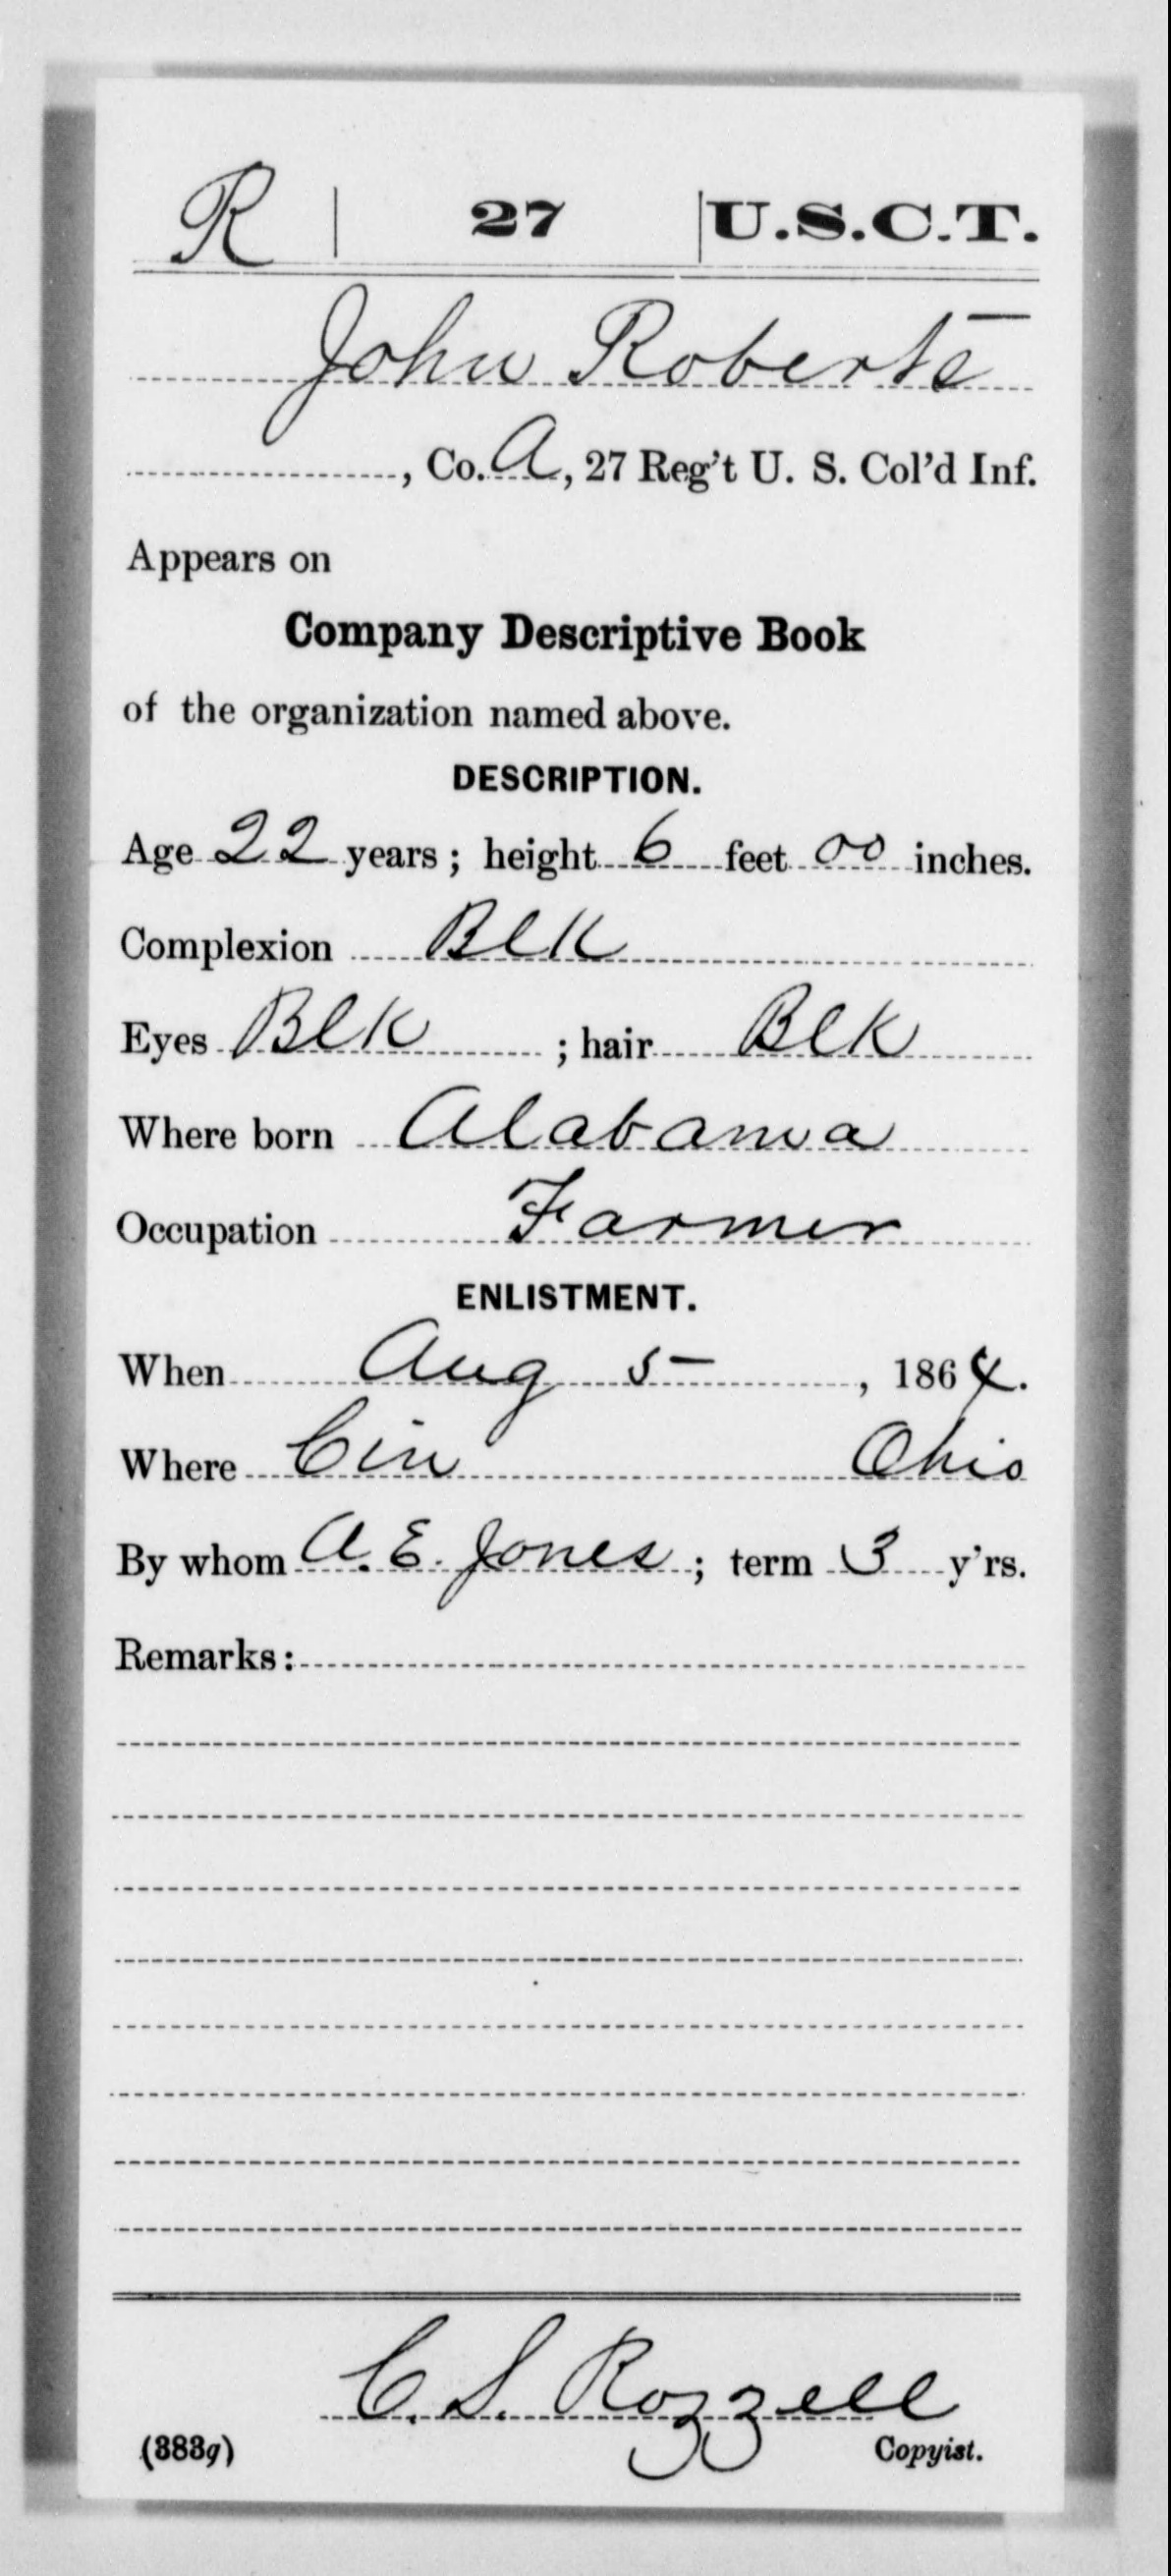 R | 27 | U.S.C.T.
John Roberts
, Co. A, 27 Reg't U. S. Col'd Inf.
Appears on
Company Descriptive Book
of the organization named above.
DESCRIPTION.
Age 22 years; height 6 feet 00 inches.
Complexion Blk
Eyes Blk ; hair Blk
Where born Alabama
Occupation Farmer
ENLISTMENT.
When Aug 5 , 1864.
Where Cin Ohio
By whom A. E. Jones ; term 3 y'rs.
Remarks:
C. S. Rozzell
(383g) Copyist.